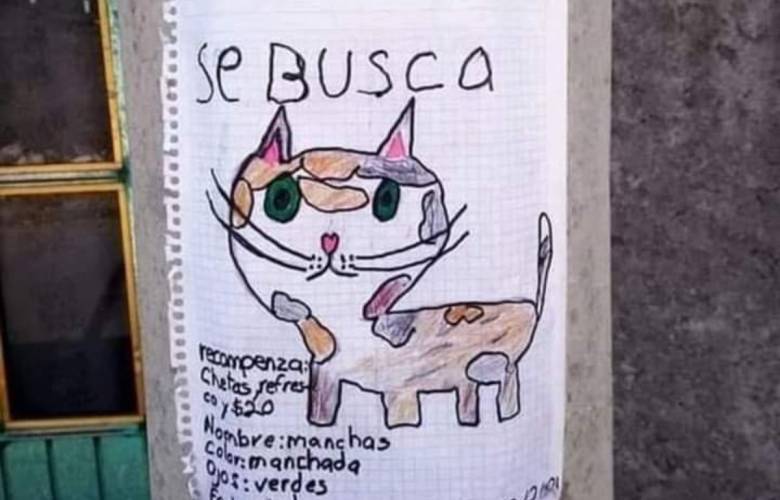 Se BUSCA
recompenza:
Chetas, refres-
co y $20
Nombre: manchas
Color: manchada
Ojos: verdes